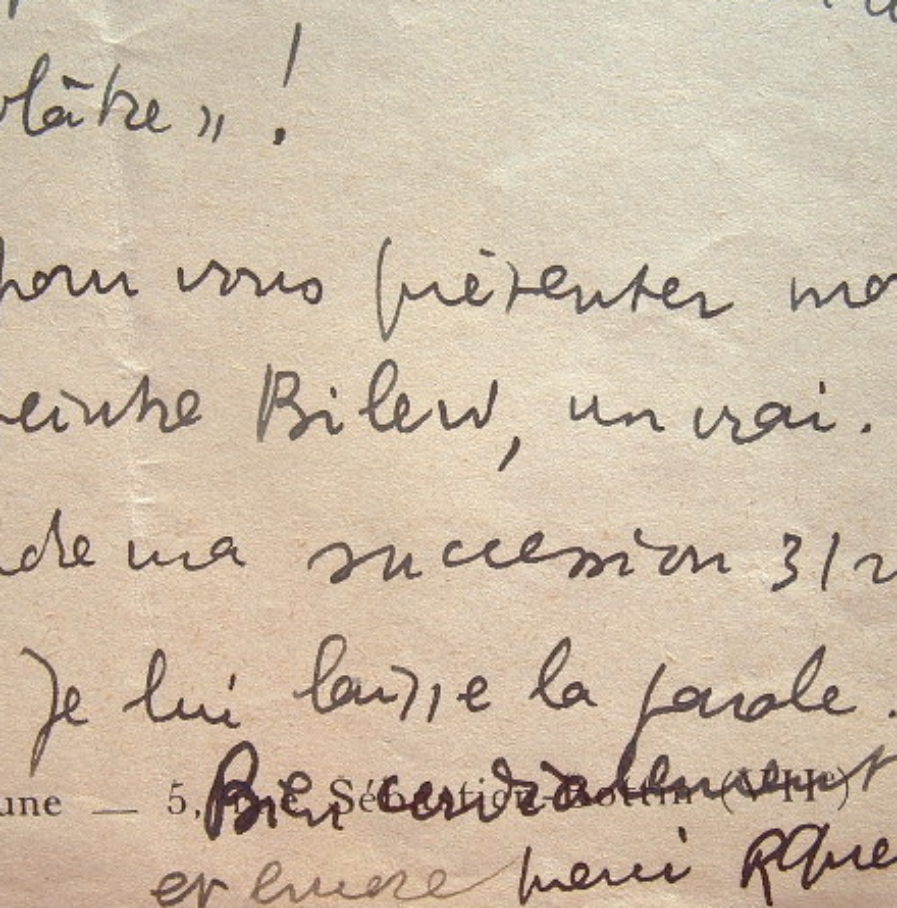 plâtre » !
pour vous présenter mo
peintre Bilew, un vrai.
dre ma succession 31 r
Je lui laisse la parole.
une — 5, rue Sébastien-Bottin (VIIe)
Bien cordialement
et encore merci RQue